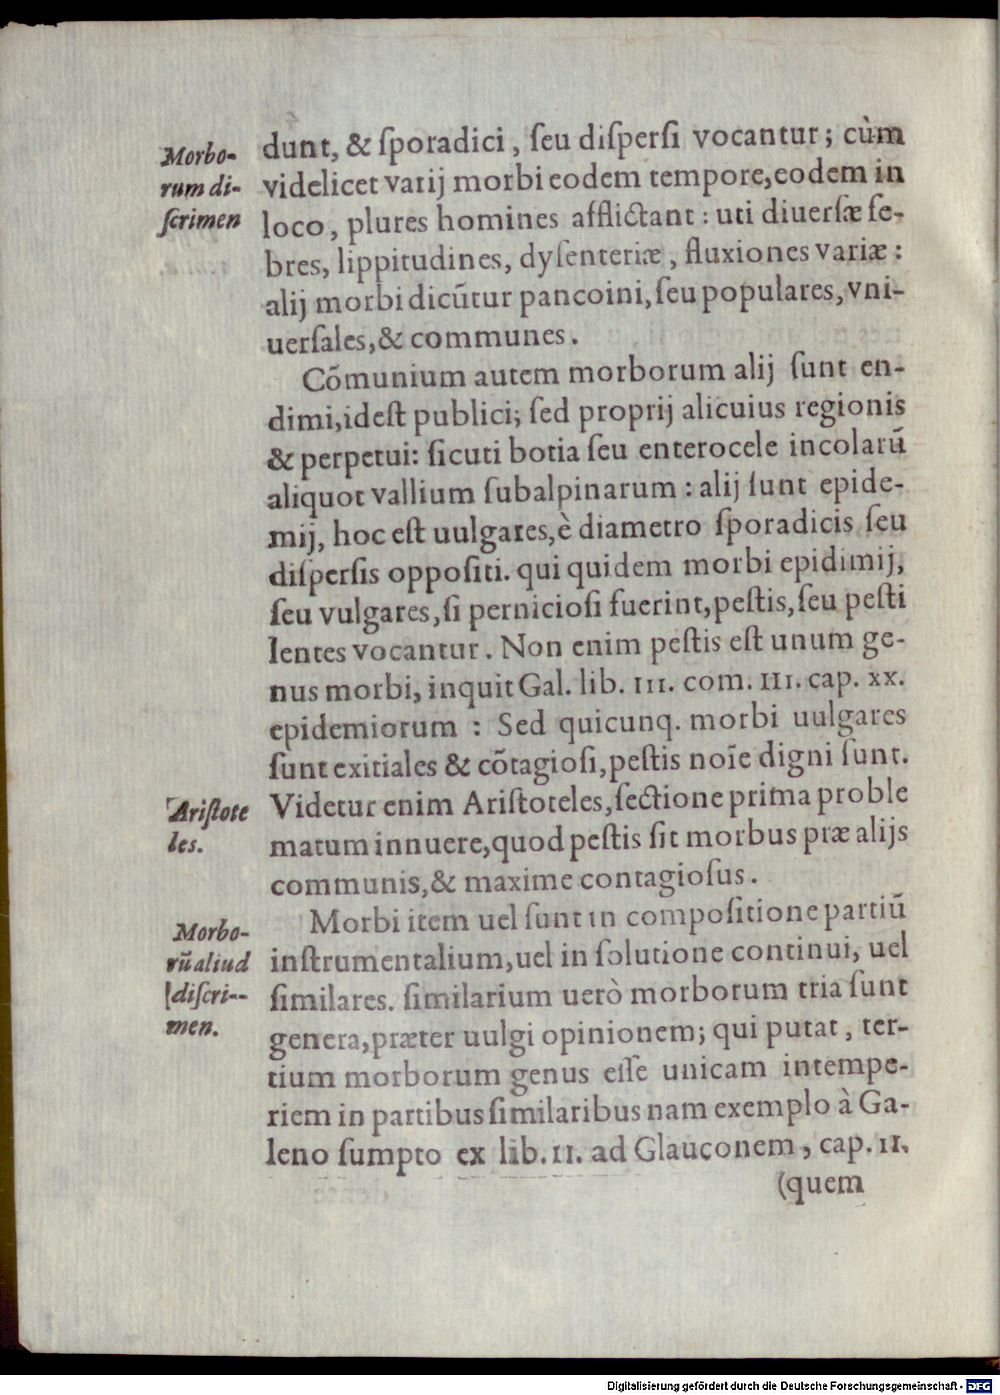 Morbo-
rum di-
ſcrimen
dunt, & ſporadici, ſeu diſperſi vocantur; cùm
videlicet varij morbi eodem tempore, eodem in
loco, plures homines afflictant: uti diuerſæ fe-
bres, lippitudines, dyſenteriæ, fluxiones variæ:
alij morbi dicūtur pancoini, ſeu populares, vni-
uerſales, & communes.
Cōmunium autem morborum alij ſunt en-
dimi, ideſt publici; ſed proprij alicuius regionis
& perpetui: ſicuti botia ſeu enterocele incolarū
aliquot vallium ſubalpinarum: alij ſunt epide-
mij, hoc eſt uulgares, è diametro ſporadicis ſeu
diſperſis oppoſiti. qui quidem morbi epidimij,
ſeu vulgares, ſi pernicioſi fuerint, peſtis, ſeu peſti
lentes vocantur. Non enim peſtis eſt unum ge-
nus morbi, inquit Gal. lib. III. com. III. cap. XX.
epidemiorum: Sed quicunq. morbi uulgares
ſunt exitiales & cōtagioſi, peſtis noīe digni ſunt.
Ariſtote
les.
Videtur enim Ariſtoteles, ſectione prima proble
matum innuere, quod peſtis ſit morbus præ alijs
communis, & maxime contagioſus.
Morbo-
rū aliud
diſcri-
men.
Morbi item uel ſunt in compoſitione partiū
inſtrumentalium, uel in ſolutione continui, uel
ſimilares. ſimilarium uerò morborum tria ſunt
genera, præter uulgi opinionem; qui putat, ter-
tium morborum genus eſſe unicam intempe-
riem in partibus ſimilaribus nam exemplo à Ga-
leno ſumpto ex lib. II. ad Glauconem, cap. II.
(quem
Digitalisierung gefördert durch die Deutsche Forschungsgemeinschaft - DFG